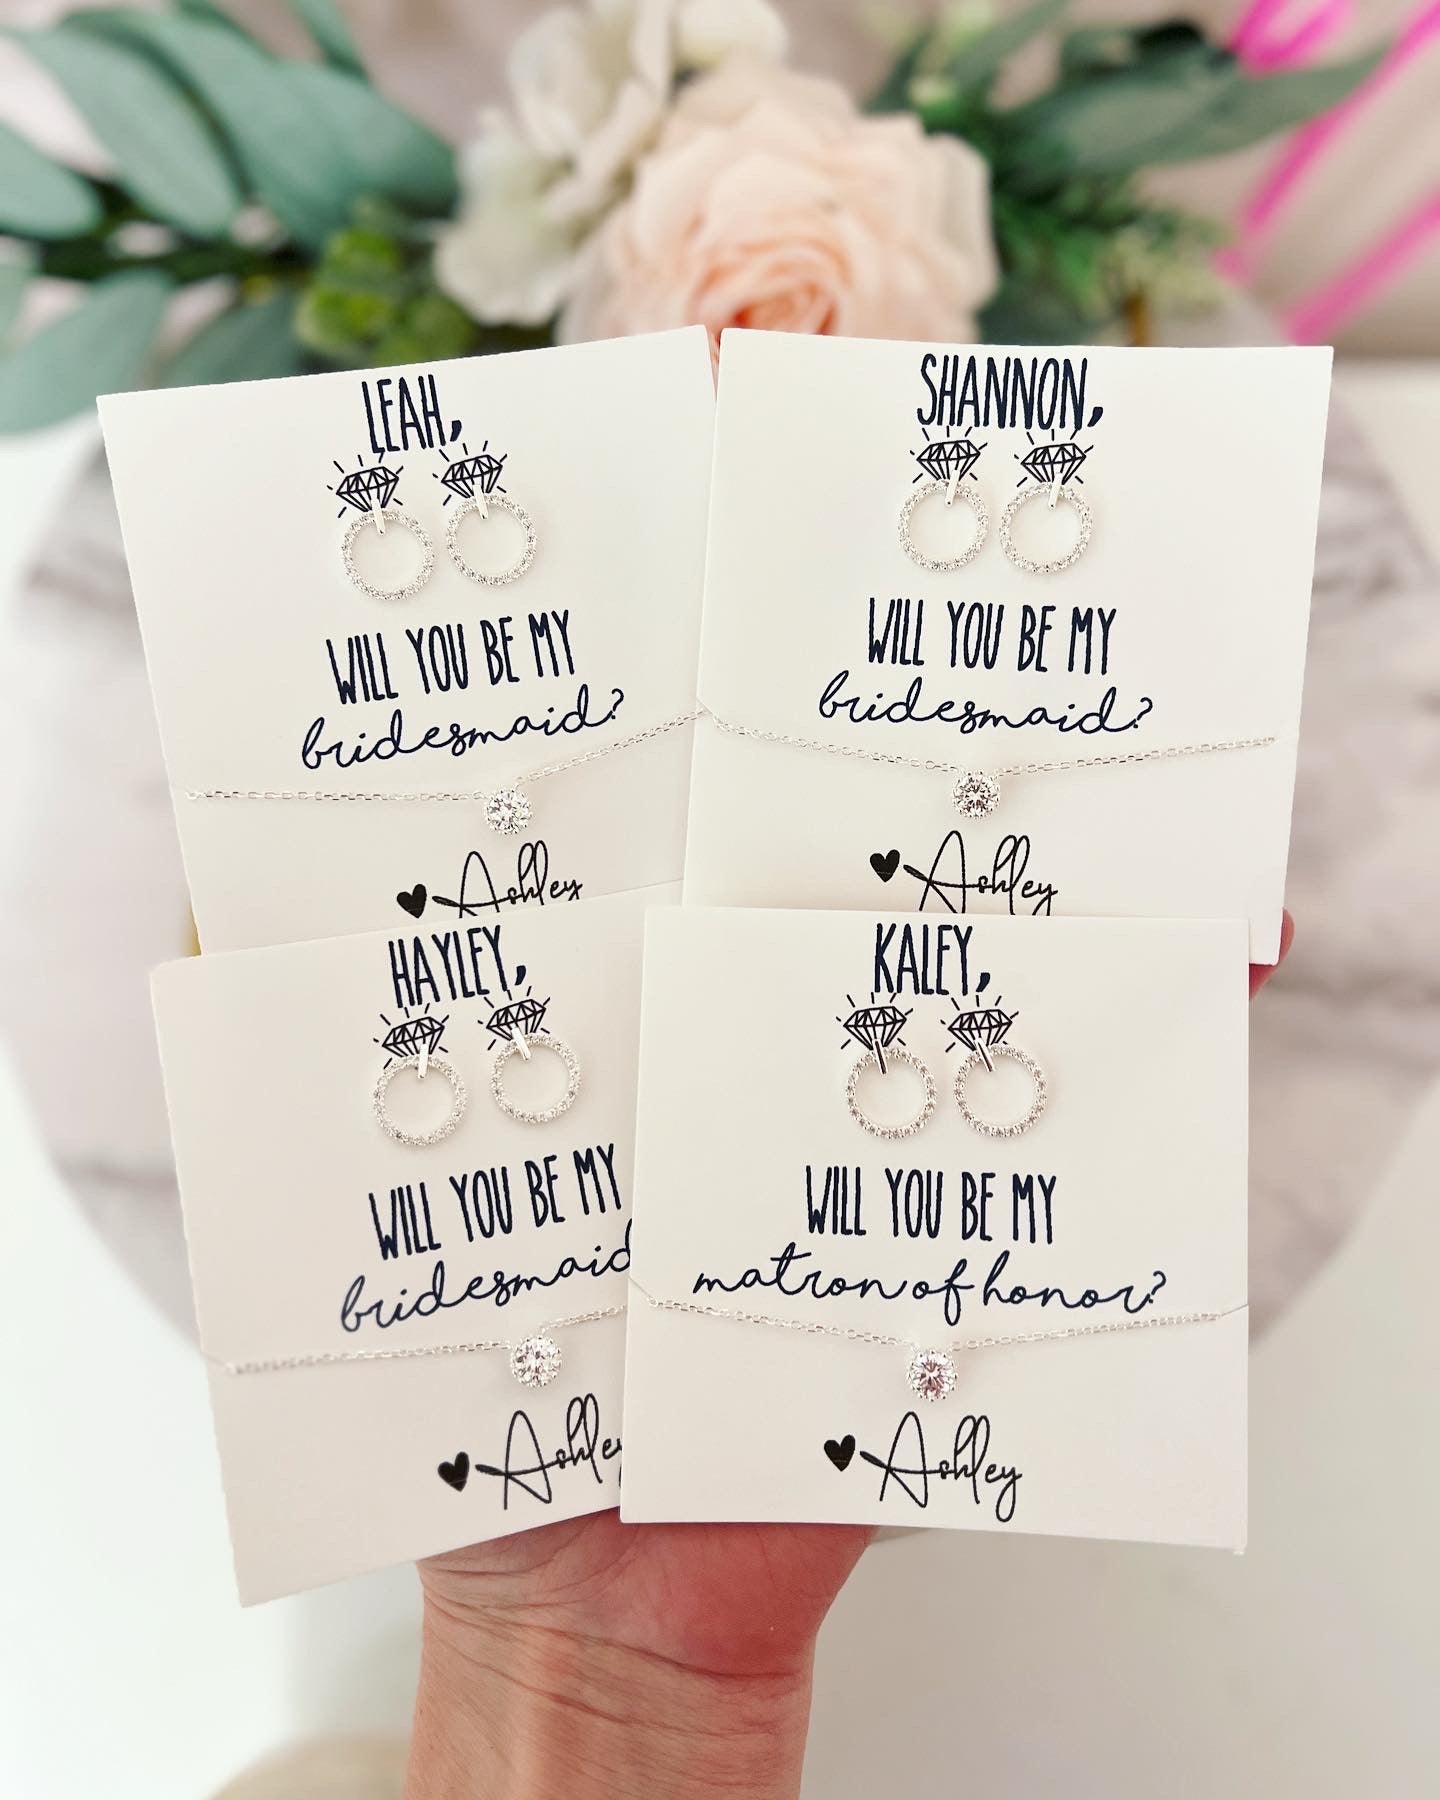 LEAH,
WILL YOU BE MY
bridesmaid?
Ashley
SHANNON,
WILL YOU BE MY
bridesmaid?
Ashley
HAYLEY,
WILL YOU BE MY
bridesmaid
Ashley
KALEY,
WILL YOU BE MY
matron of honor?
Ashley